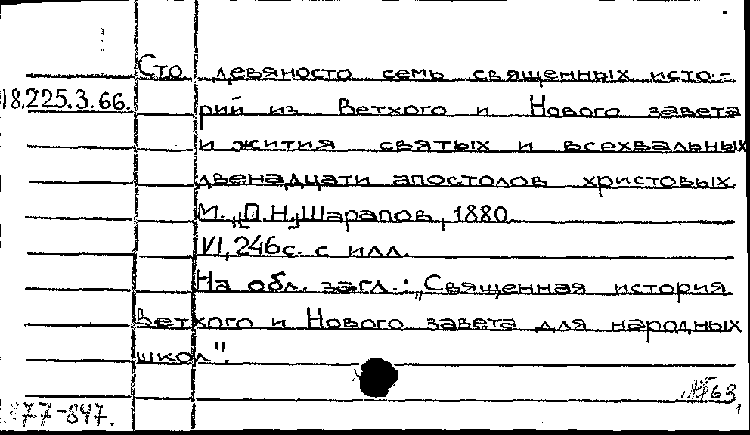 Сто девяносто семь священных исто-
18.225.3.66.
рий из Ветхого и Нового завета
и жития святых и всехвальных
двенадцати апостолов христовых.
М., [П.Н.] Шарапов, 1880.
VI, 246с. с илл.
На обл. загл.: „Священная история
Ветхого и Нового завета для народных
школ".
63
77-847.